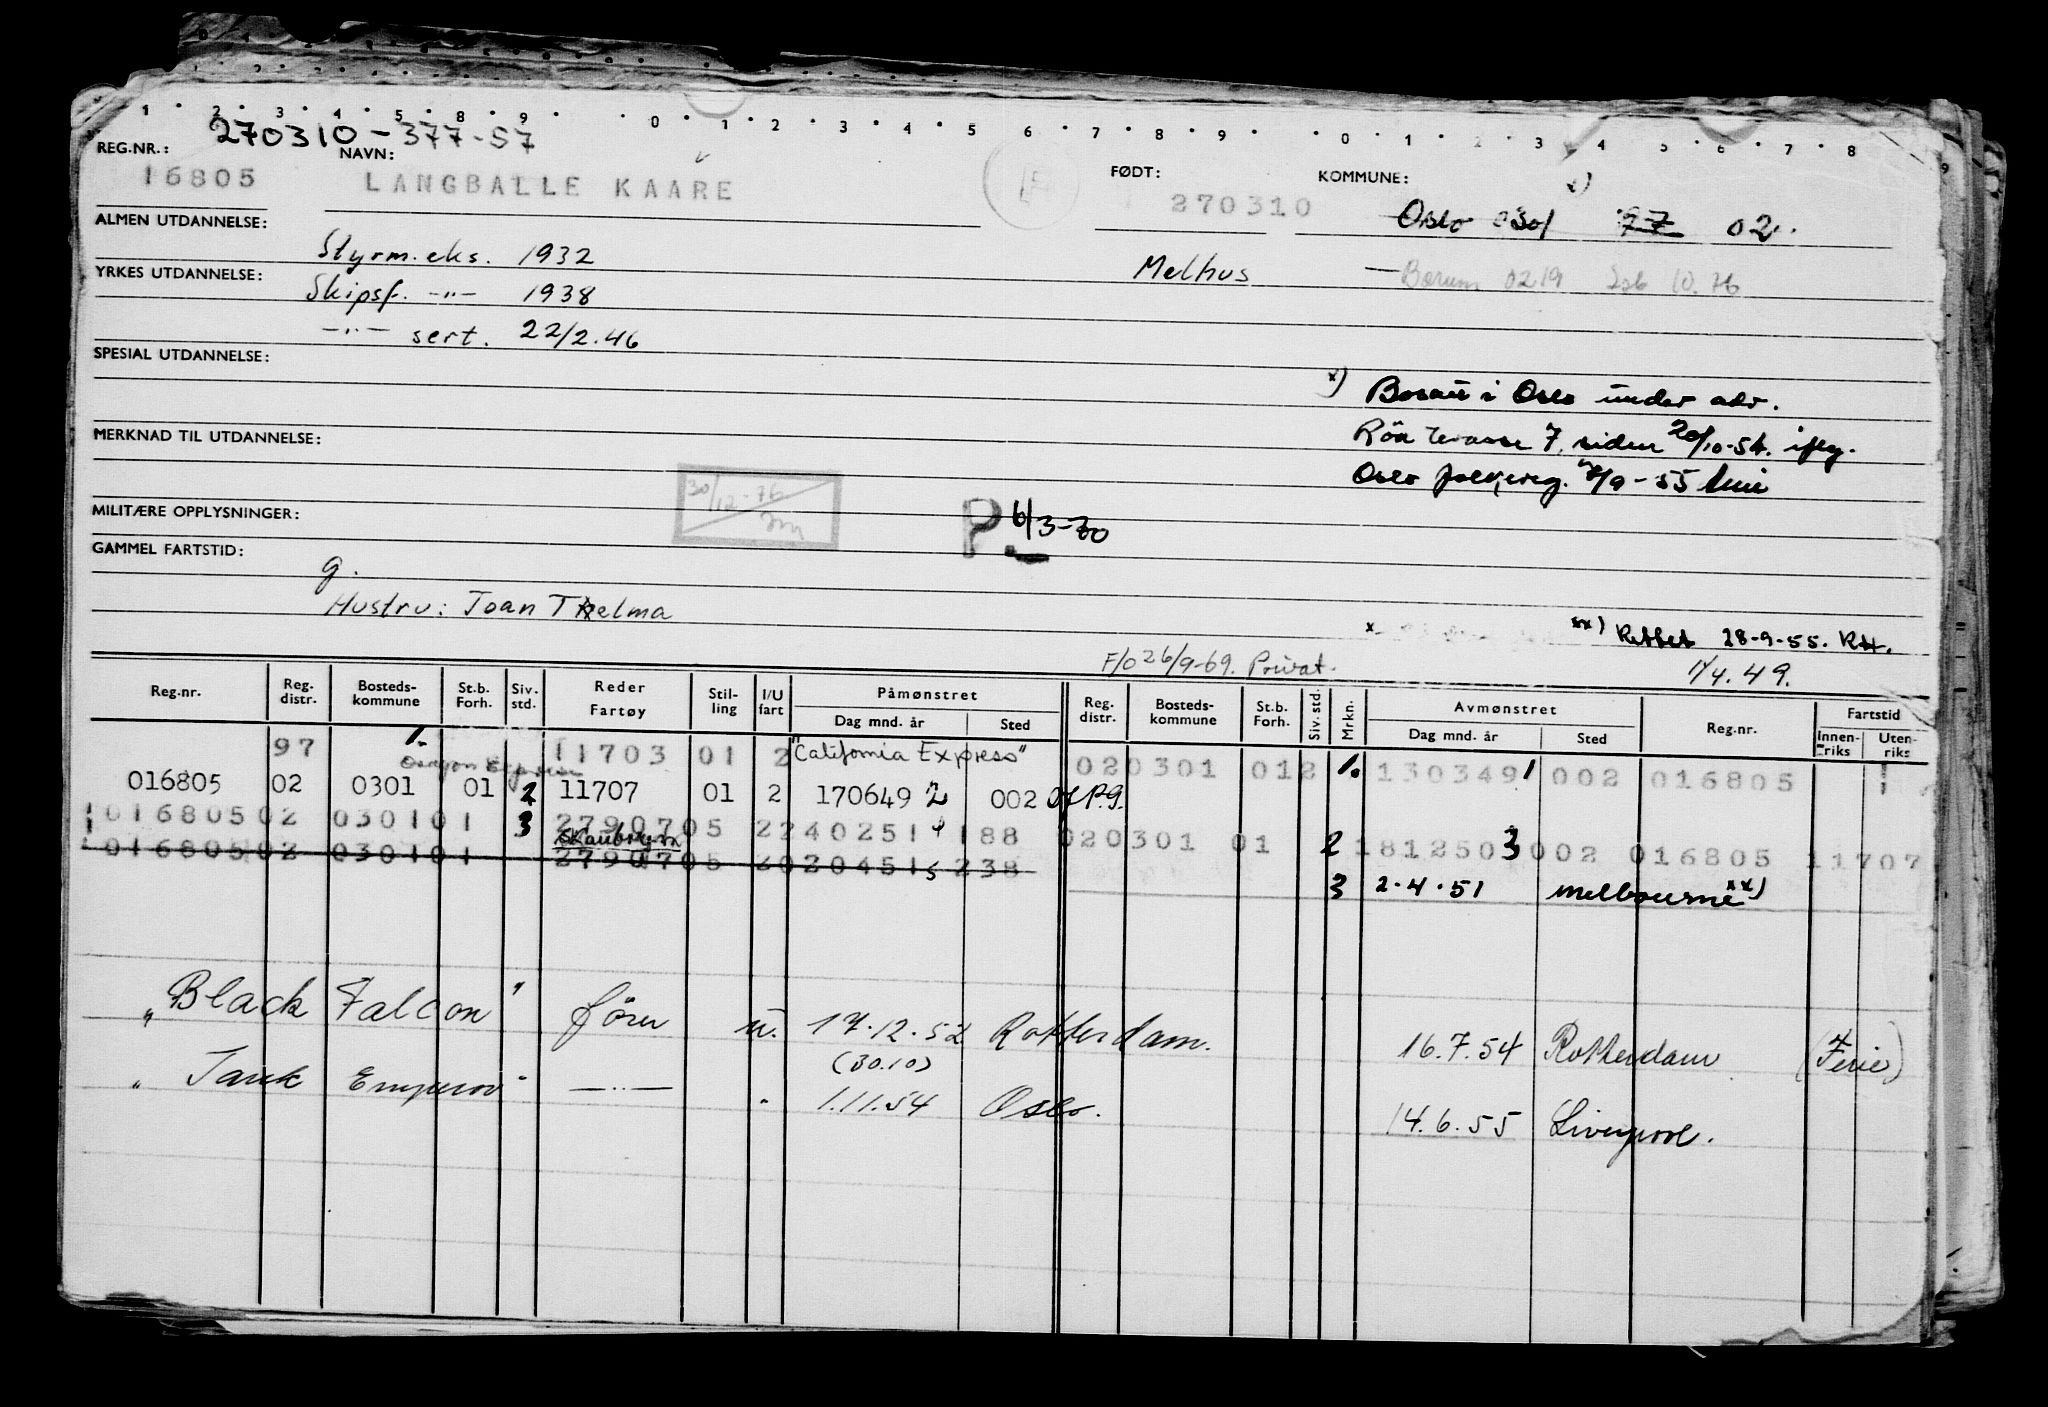 1 2 3 4 5 8 9 0 1 2 3 4 5 6 7 8 9 0 1 2 3 4 5 6 7 8 9
270310-377-57
REG.NR.: NAVN: FØDT: KOMMUNE:
16805 LANGBALLE KAARE 270310 Oslo 0301 77 02
ALMEN UTDANNELSE:
Styrm.eks. 1932 Melhus Bærum 0219 10.76
YRKES UTDANNELSE:
Skipsf. -"- 1938
-"- sert. 22/2.46
SPESIAL UTDANNELSE:
x) Bosatt i Oslo under adr.
MERKNAD TIL UTDANNELSE:
Röa terasse 7, siden 20/10-54. iflg.
Oslo folkereg. /9-55
30/12-76
MILITÆRE OPPLYSNINGER:
P. 6/3-70
GAMMEL FARTSTID:
g.
Hustru: Joan Thelma
xx) Rettet 28-9-55. RH.
F/O 26/9-69. Privat. 1/4.49.
Reg.nr. Reg. distr. Bosteds- kommune St.b. Forh. Siv. std. Reder Fartøy Stil- ling I/U fart Påmønstret Dag mnd. år Sted Reg. distr. Bosteds- kommune St.b. Forh. Siv. std. Mrkn. Avmønstret Dag mnd. år Sted Reg.nr. Fartstid Innen- riks Uten- riks
97 1. 11703 01 2 "California Express" 020301 012 1. 130349 1 002 016805
Oregon Express
016805 02 0301 01 2 11707 01 2 170649 2 002
016805 02 0301 01 3 27907 05 2 240251 4 188 020301 01 2 181250 3 002 016805 11707
Skaubryn
016805 02 0301 01 27907 05 2 020451 5 238
3 2.4.51 Melbourne xx)
"Black Falcon" fører u. 17.12.52 Rotterdam. 16.7.54 Rotterdam (Ferie)
(30.10)
"Tank Emperor" -"- " 1.11.54 Oslo. 14.6.55 Liverpool.